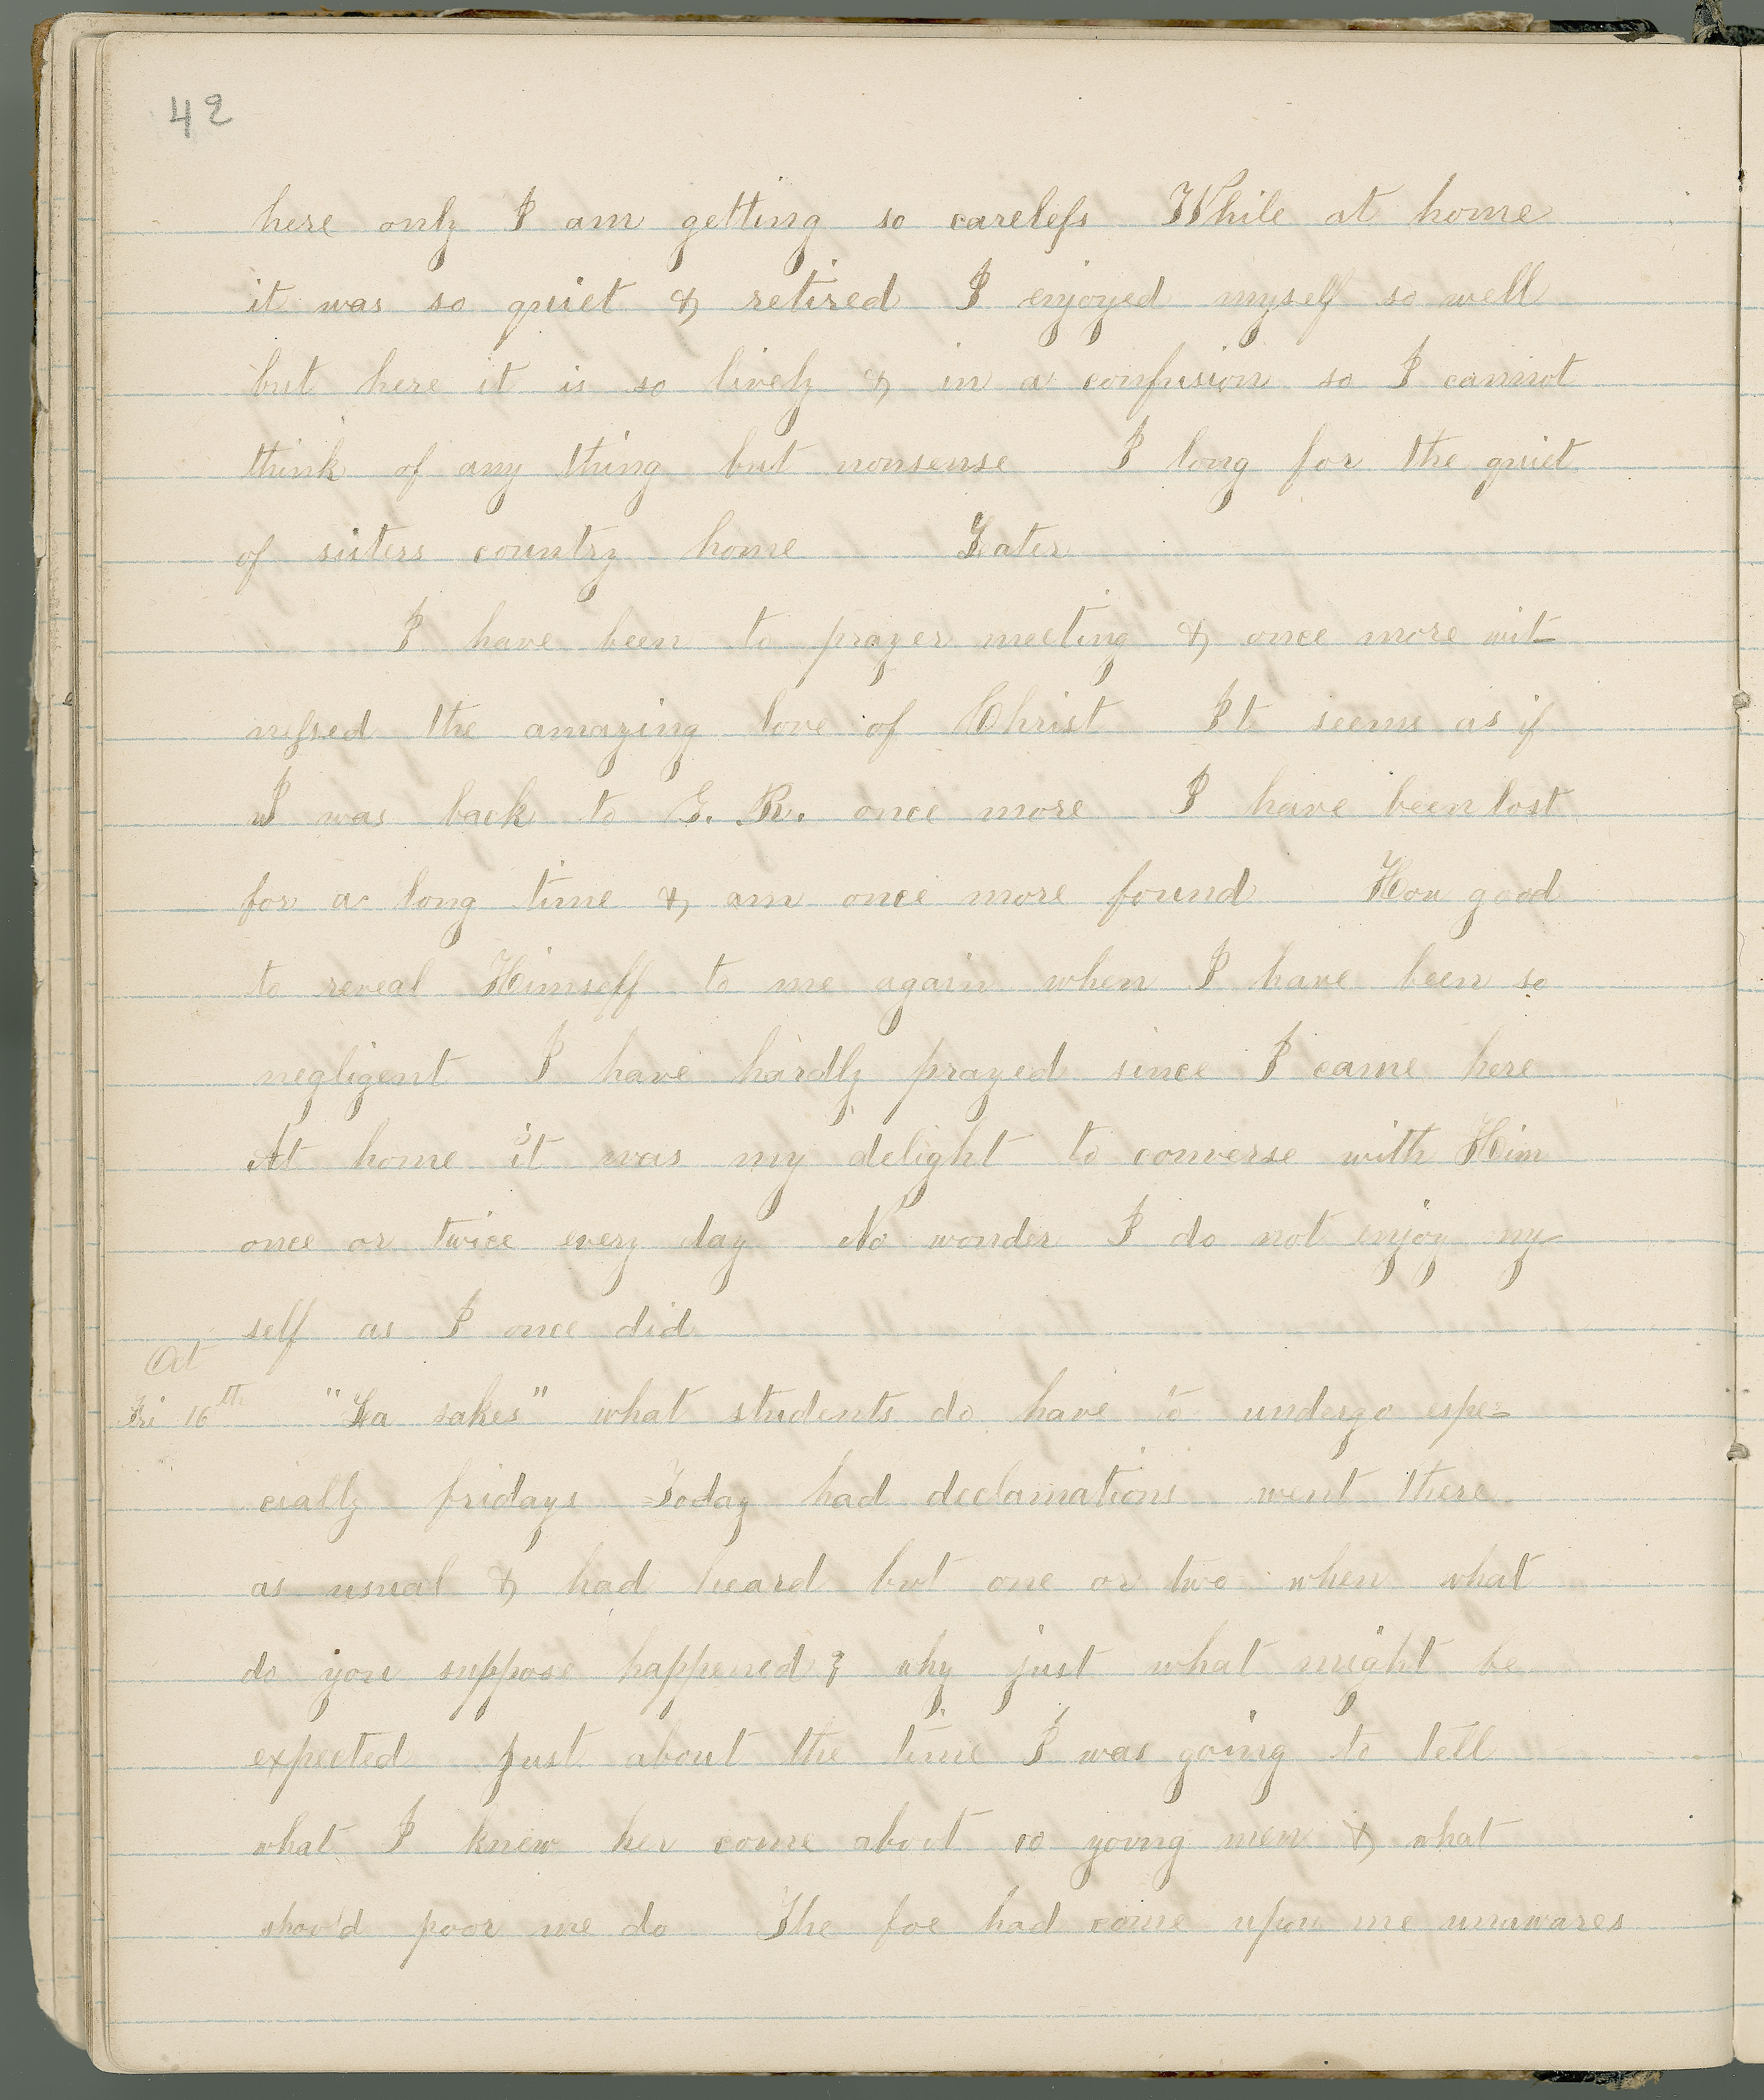 42
here only I am getting so careless While at home
it was so quiet & retired I enjoyed myself so well
but here it is so lively & in a confusion so I cannot
think of any thing but nonsense I long for the quiet
of sisters country home Later
I have been to prayer meeting & once more wit-
nessed the amazing love of Christ It seems as if
I was back to G. R. once more I have been lost
for a long time & am once more found How good
to reveal Himself to me again when I have been so
negligent I have hardly prayed since I came here
At home it was my delight to converse with Him
once or twice every day No wonder I do not enjoy my-
self as I once did
Oct
Fri 16th "La sakes" what students do have to undergo espe-
cially fridays Today had declamations went there
as usual & had heard but one or two when what
do you suppose happened? why just what might be
expected just about the time I was going to tell
what I knew her come about 10 young men & what
shou'd poor me do The foe had come upon me unawares